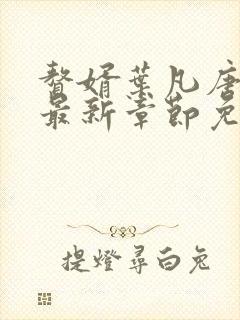 赘婿葉凡唐
最新章節免
提燈尋白兔